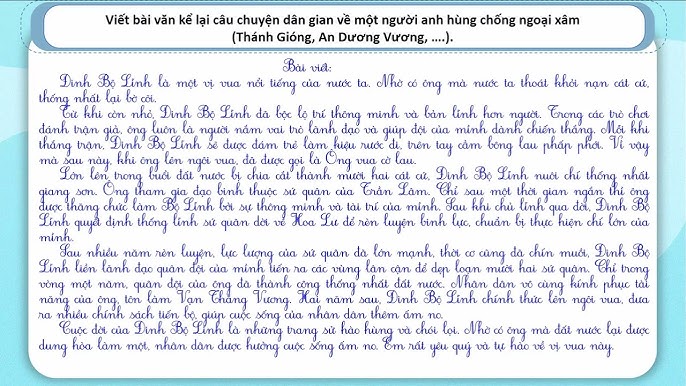 Viết bài văn kể lại câu chuyện dân gian về một người anh hùng chống ngoại xâm
(Thánh Gióng, An Dương Vương, ....).
Bài viết:
Đinh Bộ Lĩnh là một vị vua nổi tiếng của nước ta. Nhờ có ông mà nước ta thoát khỏi nạn cát cứ,
thống nhất lại bờ cõi.
Từ khi còn nhỏ, Đinh Bộ Lĩnh đã bộc lộ trí thông minh và bản lĩnh hơn người. Trong các trò chơi
đánh trận giả, ông luôn là người nắm vai trò lãnh đạo và giúp đội của mình dành chiến thắng. Mỗi khi
thắng trận, Đinh Bộ Lĩnh sẽ được đám trẻ làm kiệu rước đi, trên tay cầm bông lau phấp phới. Vì vậy
mà sau này, khi ông lên ngôi vua, đã được gọi là Ông vua cờ lau.
Lớn lên trong buổi đất nước bị chia cắt thành mười hai cát cứ, Đinh Bộ Lĩnh nuôi chí thống nhất
giang sơn. Ông tham gia đạo binh thuộc sứ quân của Trần Lãm. Chỉ sau một thời gian ngắn thì ông
được thăng chức làm Bộ Lĩnh bởi sự thông minh và tài trí của mình. Sau khi chủ lĩnh qua đời, Đinh Bộ
Lĩnh quyết định thống lĩnh sứ quân dời về Hoa Lư để rèn luyện binh lực, chuẩn bị thực hiện chí lớn của
mình.
Sau nhiều năm rèn luyện, lực lượng của sứ quân đã lớn mạnh, thời cơ cũng đã chín muồi, Đinh Bộ
Lĩnh liền lãnh đạo quân đội của mình tiến ra các vùng lân cận để dẹp loạn mười hai sứ quân. Chỉ trong
vòng một năm, quân đội của ông đã thành công thống nhất đất nước. Nhân dân vô cùng kính phục tài
năng của ông, tôn làm Vạn Thắng Vương. Hai năm sau, Đinh Bộ Lĩnh chính thức lên ngôi vua, đưa
ra nhiều chính sách tiến bộ, giúp cuộc sống của nhân dân thêm ấm no.
Cuộc đời của Đinh Bộ Lĩnh là những trang sử hào hùng và chói lọi. Nhờ có ông mà đất nước lại được
dung hòa làm một, nhân dân được hưởng cuộc sống ấm no. Em rất yêu quý và tự hào về vị vua này.